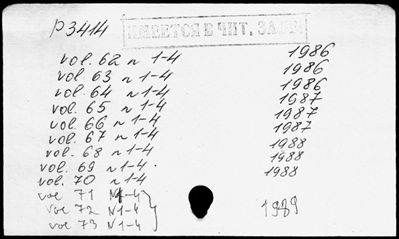 P3414 ИМЕЕТСЯ В ЧИТ. ЗАЛЕ
vol. 62 n 1-4 1986
vol. 63 n 1-4 1986
vol. 64 n 1-4 1986
vol. 65 n 1-4 1987
vol. 66 n 1-4 1987
vol. 67 n 1-4 1987
vol. 68 n 1-4 1988
vol. 69 n 1-4. 1988
vol. 70 n 1-4 1988
vol 71 N1-4
vol 72 N1-4 1989
vol 73 N1-4